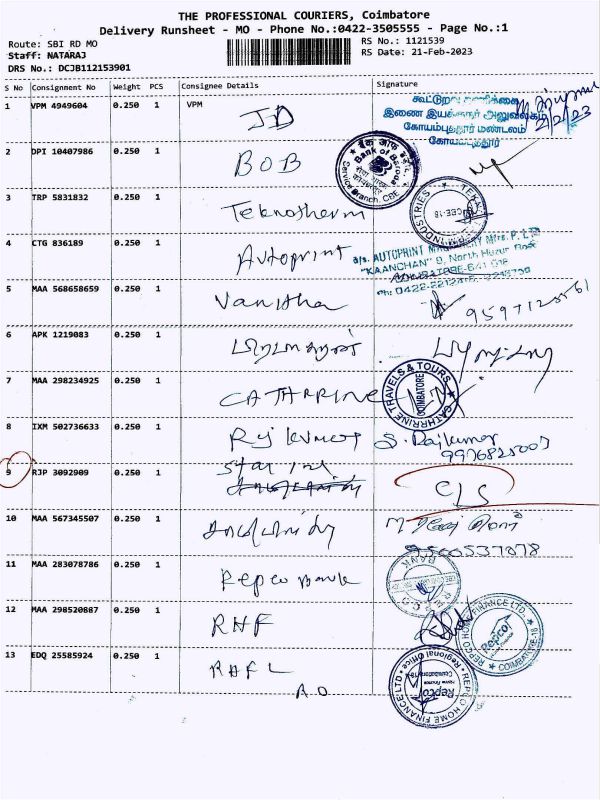 THE PROFESSIONAL COURIERS, Coimbatore
Delivery Runsheet - MO - Phone No.:0422-3505555 - Page No.:1
Route: SBI RD MO
RS No.: 1121539
Staff: NATARAJ
RS Date: 21-Feb-2023
DRS No.: DCJB112153901
S No Consignment No Weight PCS Consignee Details Signature
1 VPM 4949604 0.250 1 VPM
JD
கூட்டுறவு
இணை இயக்குநர் அலுவலகம்
கோயம்புத்தூர் மண்டலம்
கோயம்புத்தூர்
2 DPI 10407986 0.250 1
BOB
Bank of Baroda
Service Branch, CBE
3 TRP 5831832 0.250 1
Teknotherm
INDUSTRIES
CBE-18
4 CTG 836189 0.250 1
Autoprint
AUTOPRINT Mfrs. P. Ltd
"KAANCHAN" 9, North Huzur Road
5 MAA 568658659 0.250 1
Vanitha
6 APK 1219083 0.250 1
7 MAA 298234925 0.250 1
CATHRRINE
CATHRRINE TRAVELS & TOURS
COIMBATORE
8 IXM 502736633 0.250 1
Rajkumar S. Rajkumar
9 RJP 3092909 0.250 1
Star ink
CLS
10 MAA 567345507 0.250 1
9500537078
11 MAA 283078786 0.250 1
Repco Bank
REPCO BANK
12 MAA 298520887 0.250 1
RHF
REPCO HOME FINANCE LTD.
Repco
COIMBATORE-18
13 EDQ 25585924 0.250 1
RHFL
RO
REPCO HOME FINANCE LTD
Regional Office
Repco
Home Finance